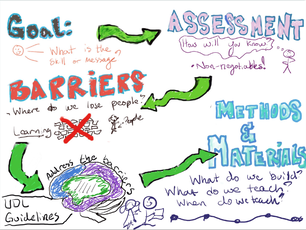 Goal:
What is the
skill or message
ASSESSMENT
How will you know?
Non-negotiables!
BARRIERS
"Where do we lose people"
Learning
People
METHODS
&
MATERIALS
Address the barriers
UDL
Guidelines
What do we build?
What do we teach?
When do we teach?